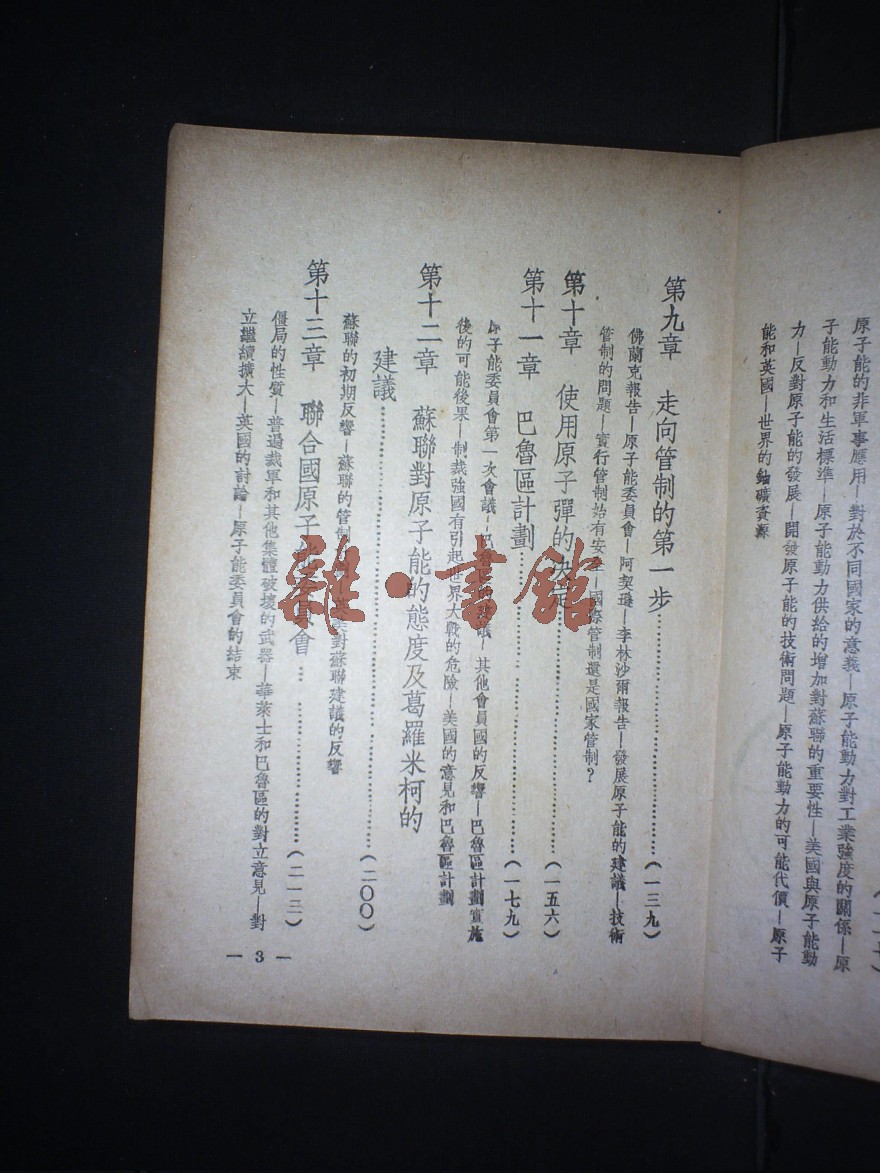 原子能的非軍事應用—對於不同國家的意義—原子能動力對工業強度的關係—原
子能動力和生活標準—原子能動力供給的增加對蘇聯的重要性—美國與原子能動
力—反對原子能的發展—開發原子能的技術問題—原子能動力的可能代價—原子
能和英國—世界的鈾礦資源
第九章 走向管制的第一步……(一三九)
佛蘭克報告—原子能委員會—阿契遜—李林沙爾報告—發展原子能的建議—技術
管制的問題—實行管制始有安—國際管制還是國家管制？
第十章 使用原子彈的決定……(一五六)
第十一章 巴魯區計劃……(一七九)
原子能委員會第一次會議—巴魯區的建議—其他會員國的反響—巴魯區計劃實施
後的可能後果—制裁強國有引起世界大戰的危險—美國的意見和巴魯區計劃
第十二章 蘇聯對原子能的態度及葛羅米柯的
建議……(二〇〇)
蘇聯的初期反響—蘇聯的管制—英美對蘇聯建議的反響
第十三章 聯合國原子能委員會……(二一三)
僵局的性質—普遍裁軍和其他集體破壞的武器—華萊士和巴魯區的對立意見—對
立繼續擴大—英國的討論—原子能委員會的結束
— 3 —
雜·書館